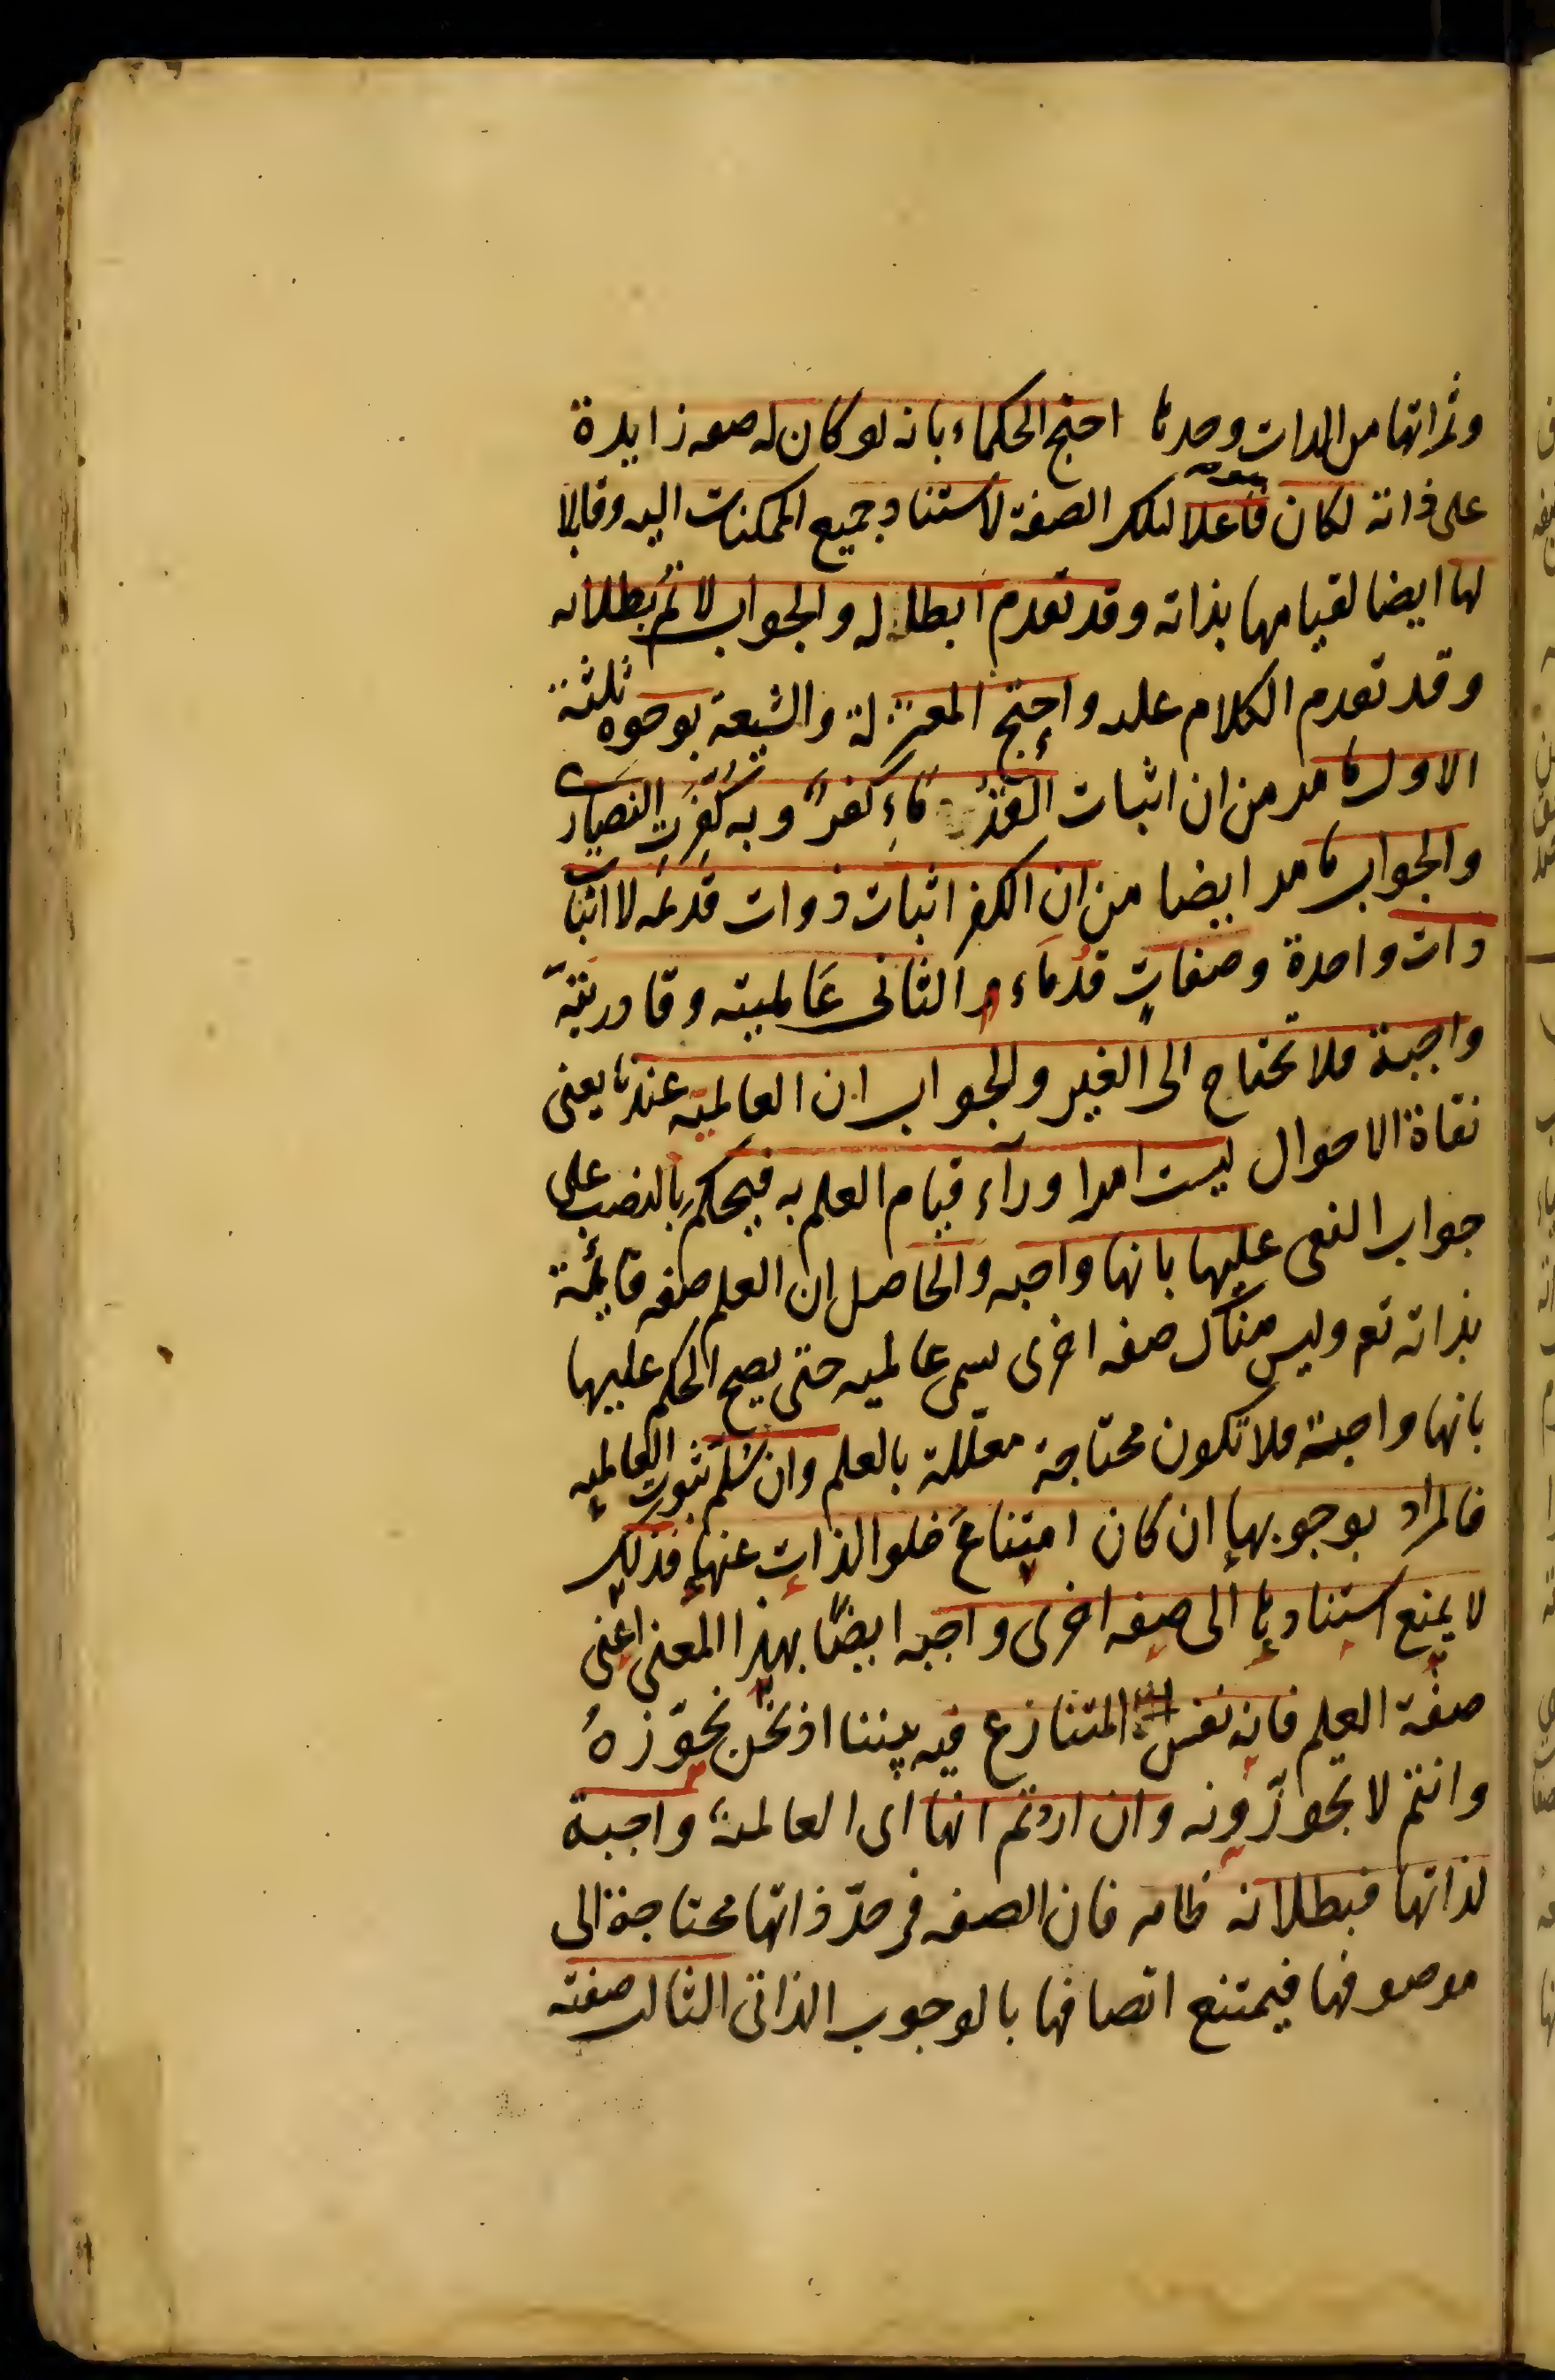 وثمراتها من الذات وحدها احتج الحكماء بانه لو كان له صفه زايدة
على ذاته لكان هو فاعلا لتلك الصفة لاستناد جميع الممكنات اليه وقابلا
لها ايضا لقيامها بذاته وقد تقدم ابطاله والجواب لا نم بطلانه
وقد تقدم الكلام عليه واحتج المعتزلة والشيعة بوجوه ثلثة
الاول ما مر من ان اثبات القدماء كفر وبه كفرت النصارى
والجواب ما مر ايضا من ان الكفر اثبات ذوات قديمه لا اثبات
ذات واحدة وصفات قدماء و الثانى عالميته وقادريته
واجبة فلا تحتاج الى الغير والجواب ان العالميه عندنا يعنى
نفاة الاحوال ليست امرا ورآء قيام العلم به فيحكم بالنصب على
جواب النفى عليها بانها واجبه والحاصل ان العلم صفه قايمة
بذاته تع وليس هناك صفه اخرى تسمى عالميه حتى يصح الحكم عليها
بانها واجبة فلا تكون محتاجة معللة بالعلم وان سلم ثبوت العالميه
فالمراد بوجوبها ان كان امتناع خلو الذات عنها فذلك
لا يمنع استنادها الى صفه اخرى واجبه ايضا بهذا المعنى اعنى
صفة العلم فانه نفس المتنازع فيه بيننا اذ نحن نجوزه
وانتم لا تجوزونه وان اردتم انها اى العالمية واجبة
لذاتها فبطلانه ظاهر فان الصفه فى حد ذاتها محتاجة الى
موصوفها فيمتنع اتصافها بالوجوب الذاتى الثالث صفته